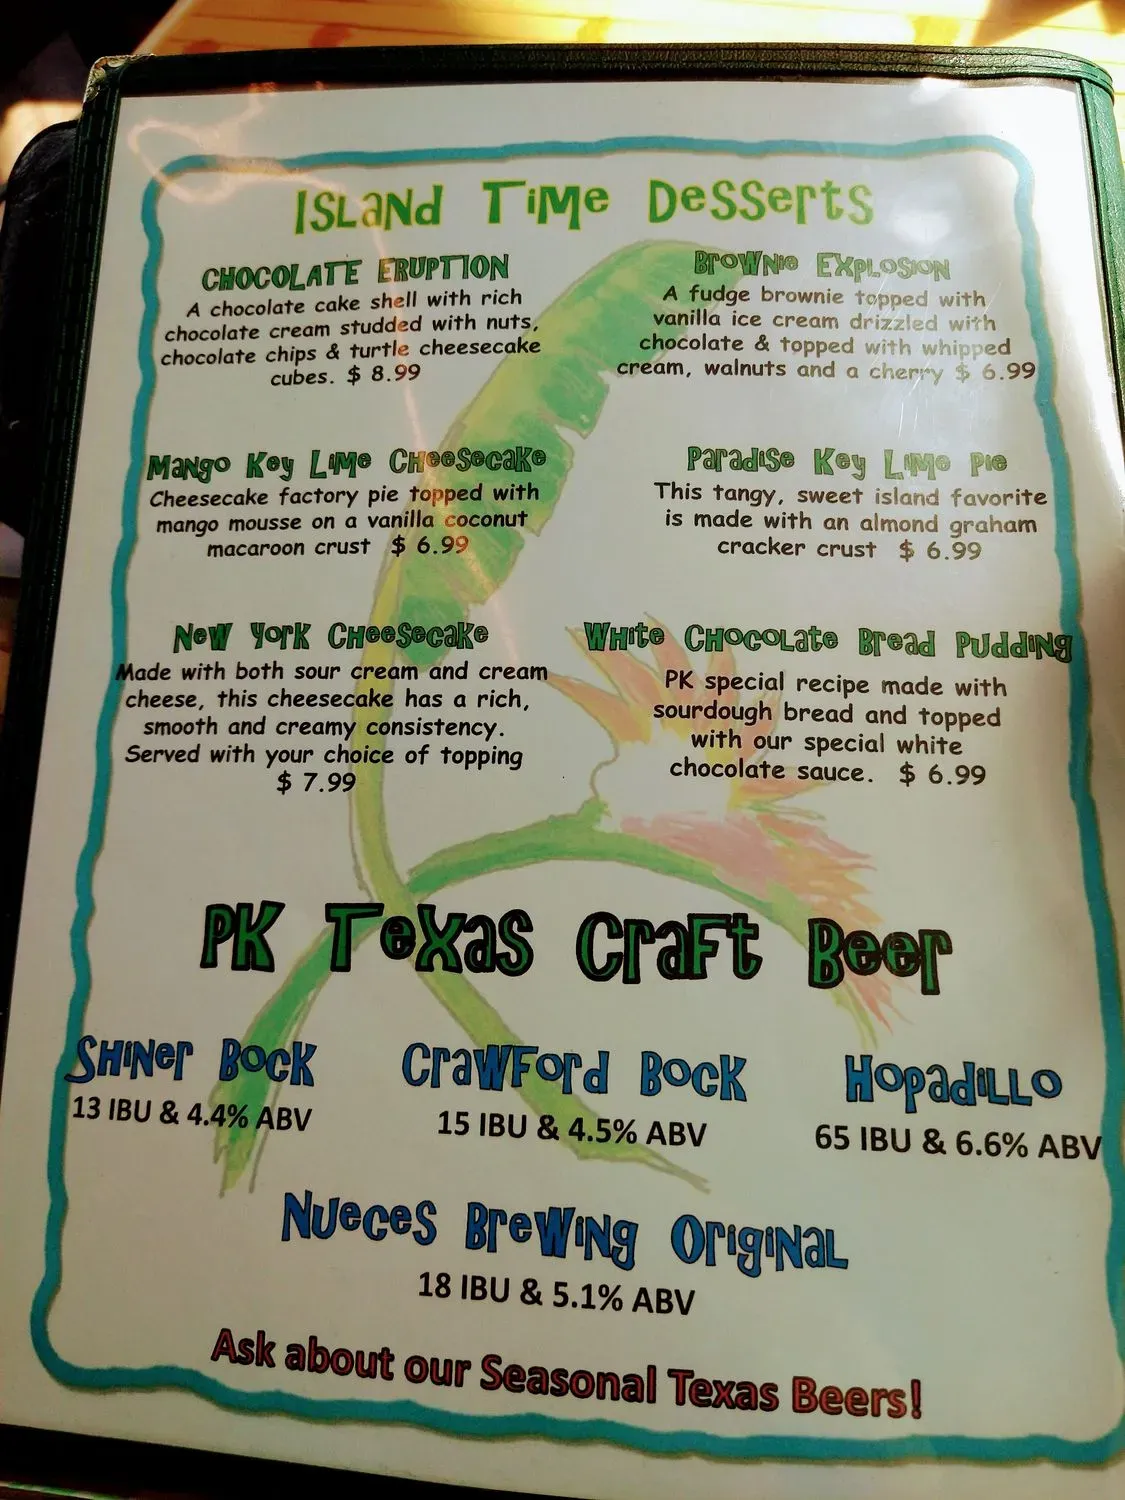 Island Time Desserts
Chocolate Eruption
A chocolate cake shell with rich
chocolate cream studded with nuts,
chocolate chips & turtle cheesecake
cubes. $ 8.99
Brownie Explosion
A fudge brownie topped with
vanilla ice cream drizzled with
chocolate & topped with whipped
cream, walnuts and a cherry $ 6.99
Mango Key Lime Cheesecake
Cheesecake factory pie topped with
mango mousse on a vanilla coconut
macaroon crust $ 6.99
Paradise Key Lime Pie
This tangy, sweet island favorite
is made with an almond graham
cracker crust $ 6.99
New York Cheesecake
Made with both sour cream and cream
cheese, this cheesecake has a rich,
smooth and creamy consistency.
Served with your choice of topping
$ 7.99
White Chocolate Bread Pudding
PK special recipe made with
sourdough bread and topped
with our special white
chocolate sauce. $ 6.99
PK Texas Craft Beer
Shiner Bock
13 IBU & 4.4% ABV
Crawford Bock
15 IBU & 4.5% ABV
Hopadillo
65 IBU & 6.6% ABV
Nueces Brewing Original
18 IBU & 5.1% ABV
Ask about our Seasonal Texas Beers!